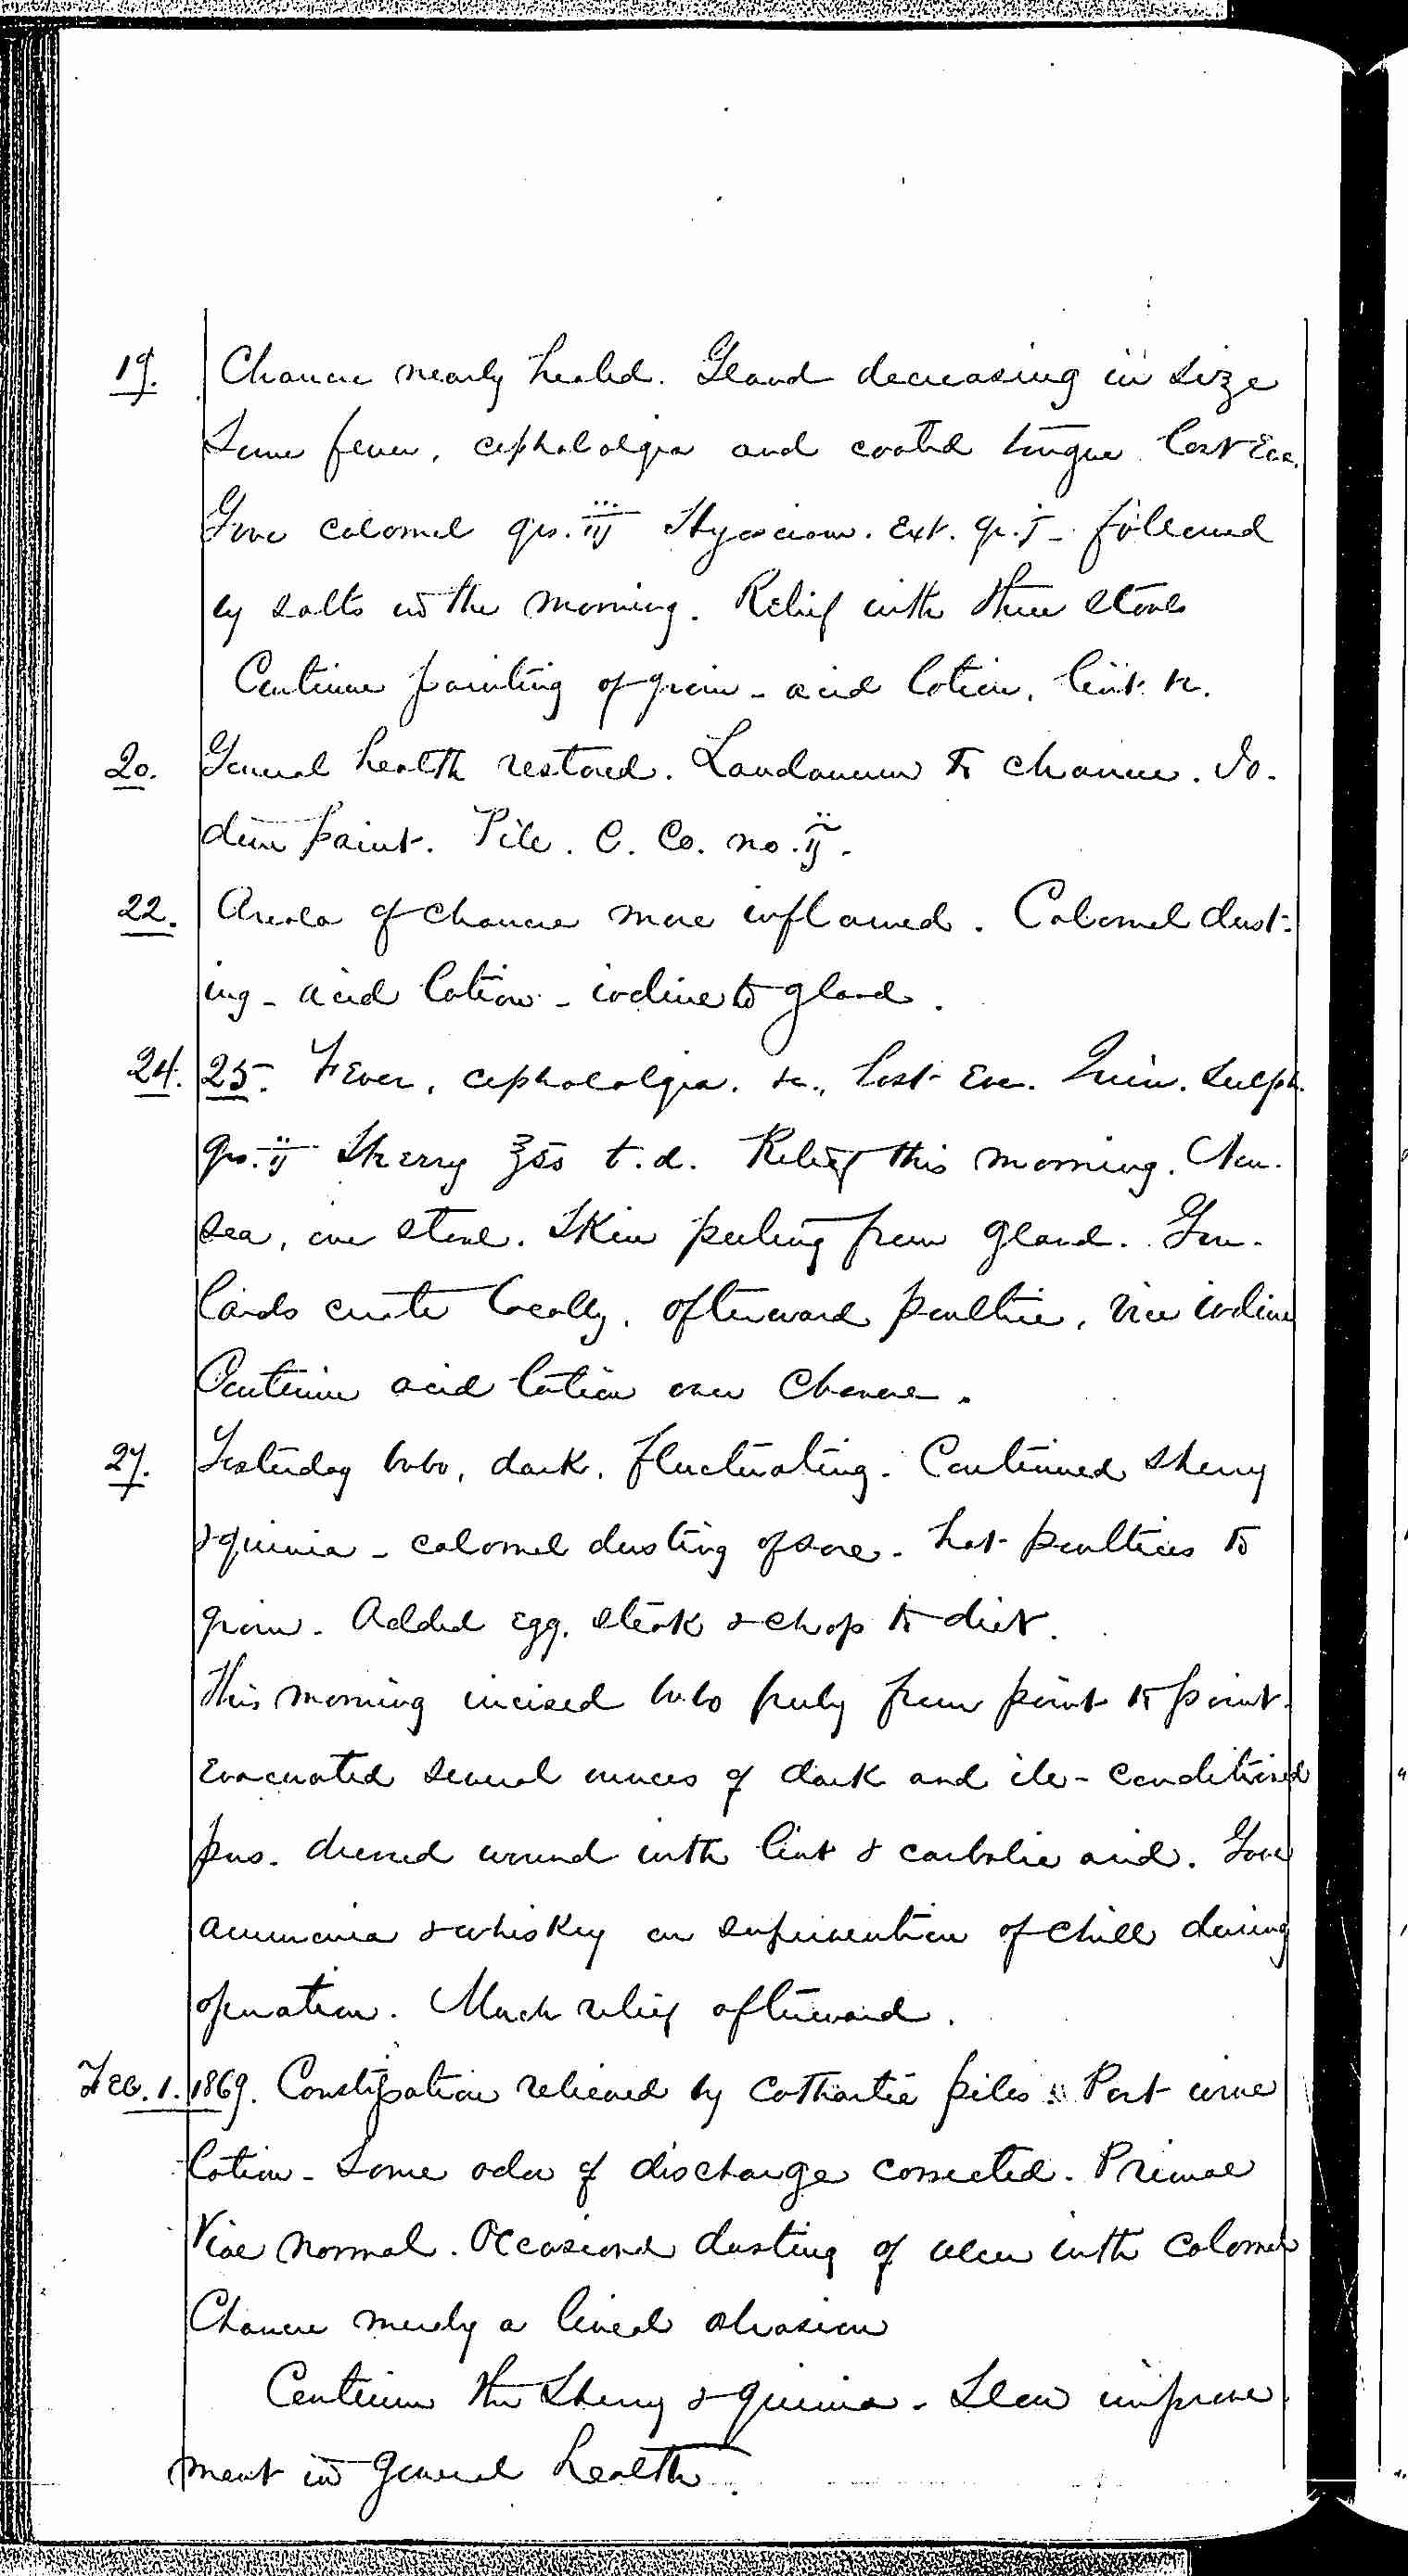 19. Chancre nearly healed. Gland decreasing in size
Some fever, cephalalgia and coated tongue last Eve.
Gave calomel grs. iij Hyosciam. Ext. gr. j - followed
by salts in the morning. Relief with three stools
Continue painting of groin - acid lotion, lint &c.
20. General health restored. Laudanum to chancre. Io-
dine paint. Pill. C. Co. no. ij.
22. Areola of chancre more inflamed. Calomel dust-
ing - acid lotion - iodine to gland.
24. 25. Fever, cephalalgia, &c., last Eve. Quin. Sulph.
grs. ij Sherry ℥ss t.d. Relief this morning. Nau-
sea, one stool. Skin peeling from gland. Gou-
lards cerate locally, afterward poultice, vice iodine
Continue acid lotion over Chancre.
27. Yesterday bubo, dark, fluctuating. Continued sherry
& quinia - calomel dusting of sore - hot poultices to
groin. Added egg, steak & chop to diet.
This morning incised bubo freely from point to point.
Evacuated several ounces of dark and ill-conditioned
pus. dressed wound with lint & carbolic acid. Gave
ammonia & whiskey on supervention of chill during
operation. Much relief afterward.
Feb. 1. 1869. Constipation relieved by cathartic pills. Port wine
lotion - Some odor of discharge corrected. Primae
Viae normal. Occasional dusting of ulcer with calomel
Chancre merely a lineal abrasion
Continue the Sherry & quinia - Slow improve
ment in general health.